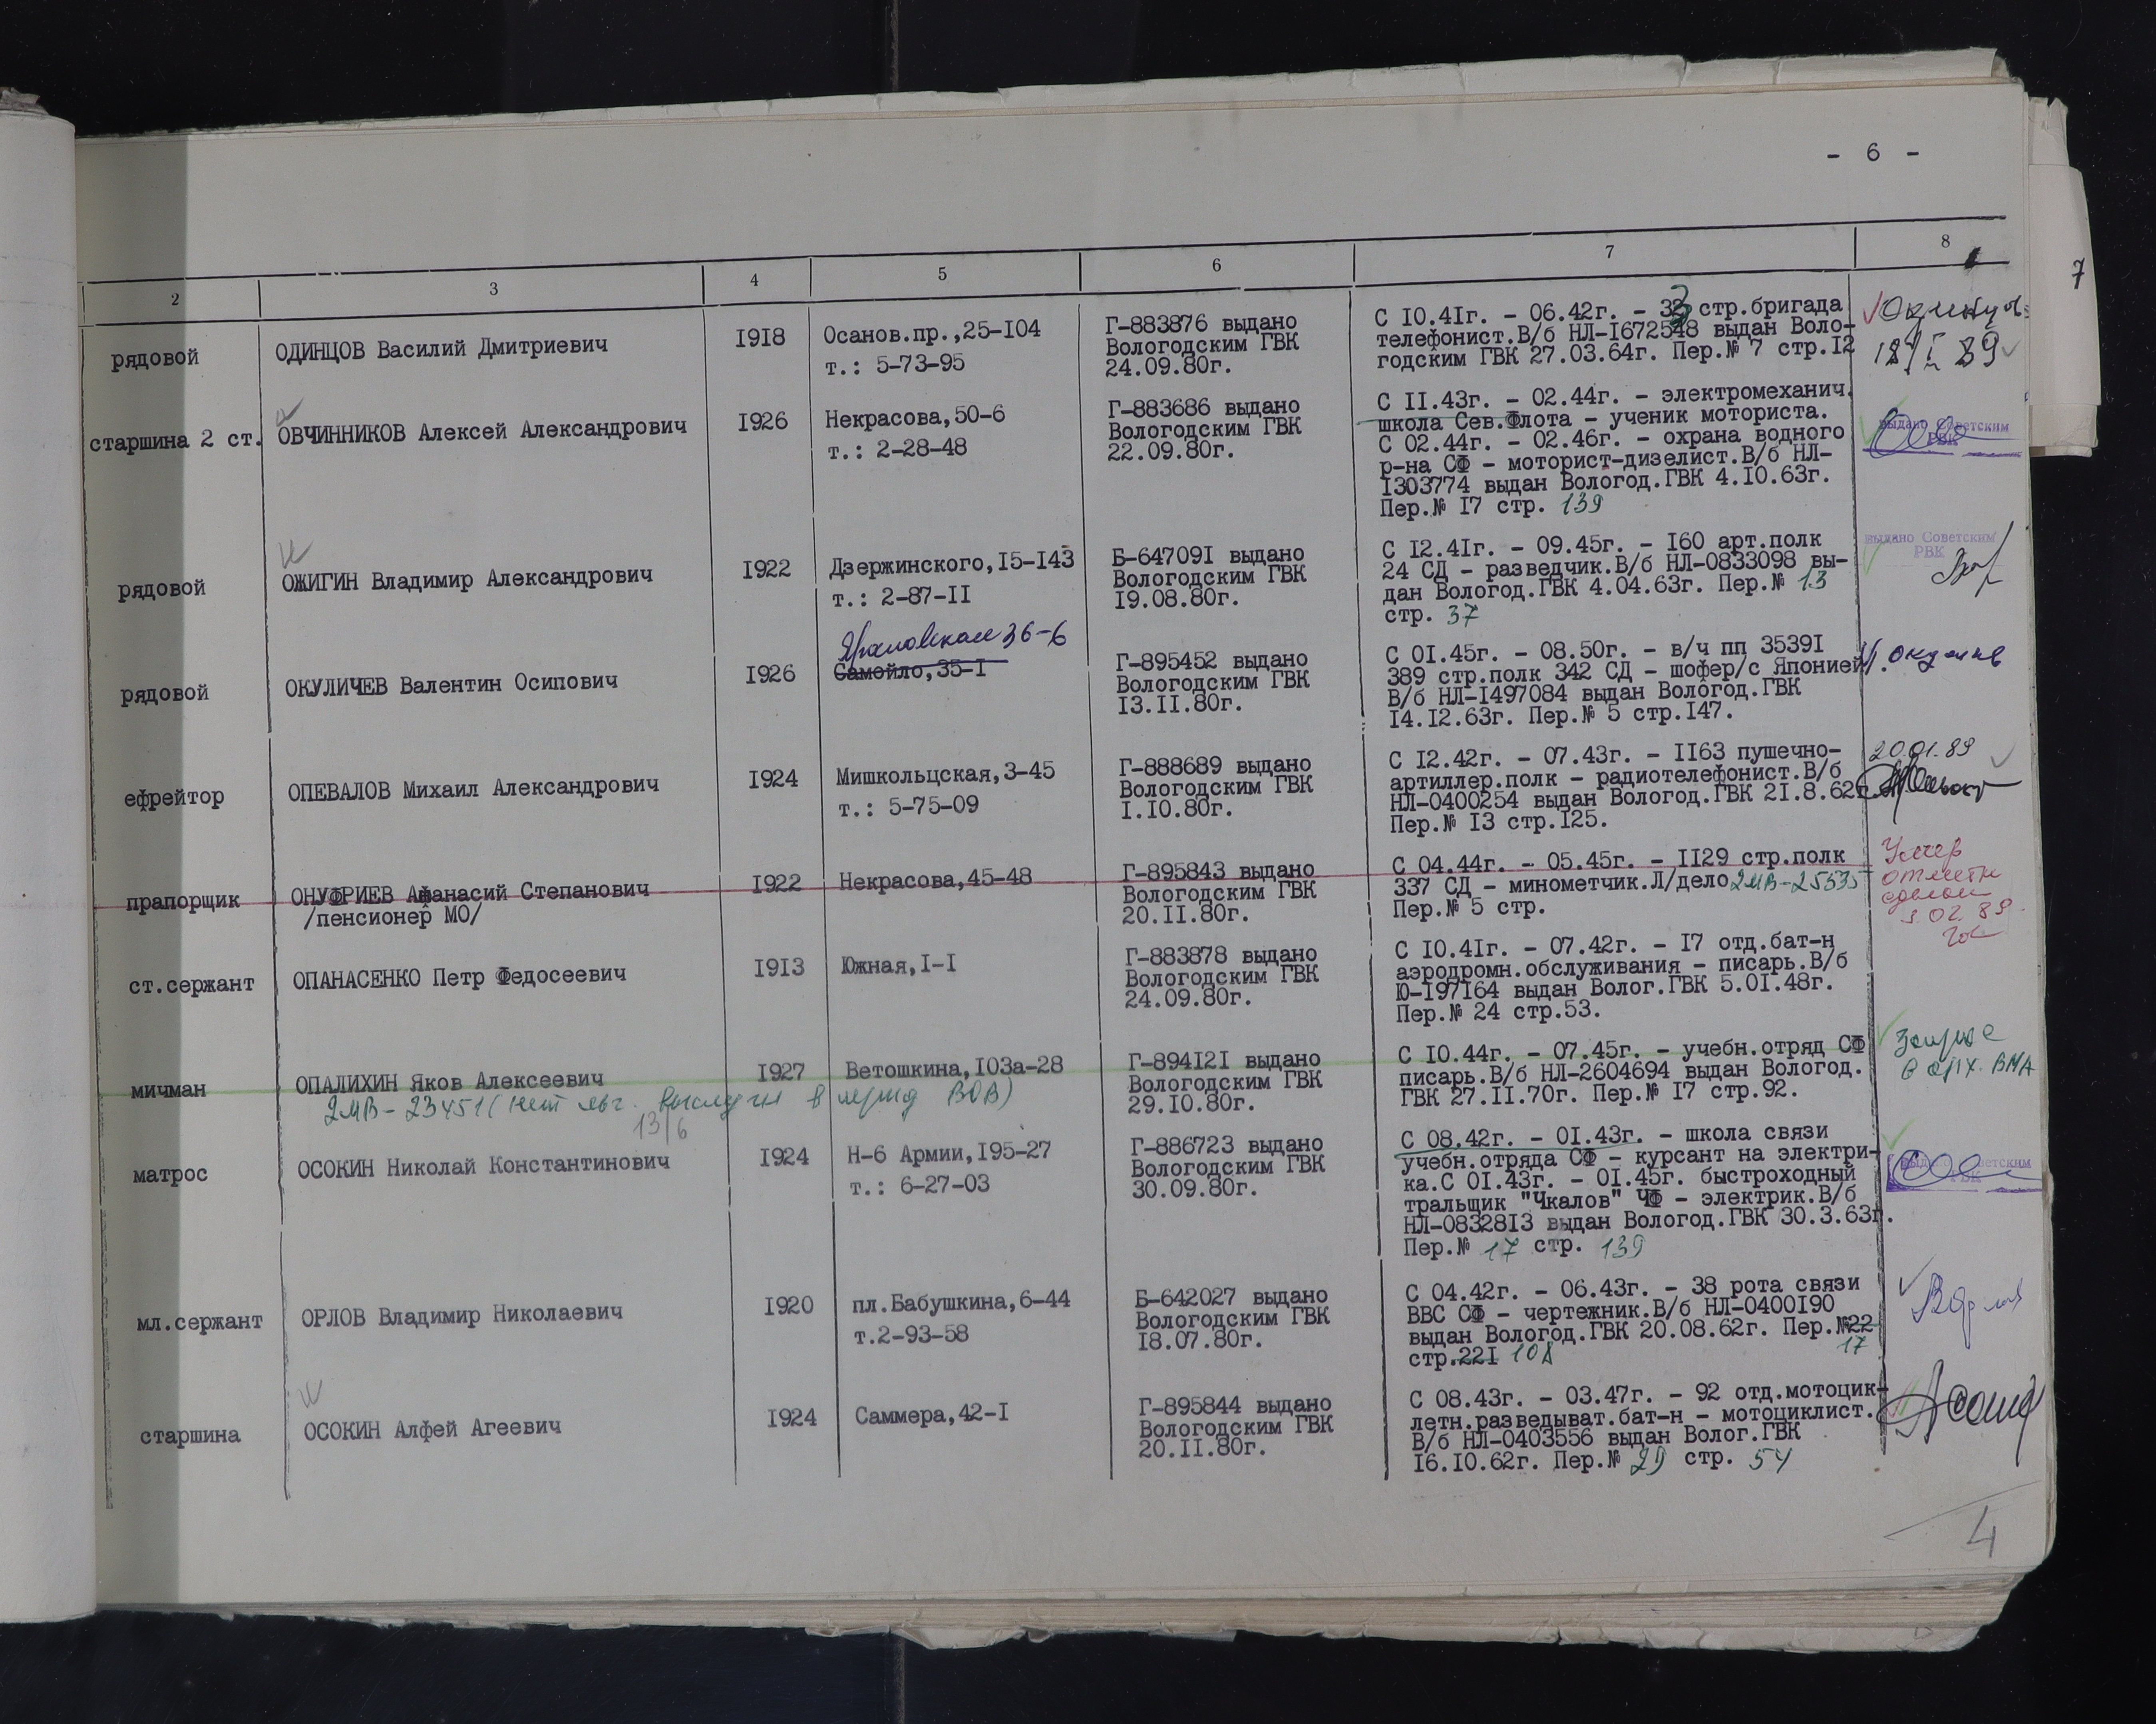 - 6 -
7
2 3 4 5 6 7 8
рядовой
ОДИНЦОВ Василий Дмитриевич
1918
Осанов.пр.,25-104
т.: 5-73-95
Г-883876 выдано
Вологодским ГВК
24.09.80г.
С 10.41г. - 06.42г. - 33 стр.бригада
телефонист.В/б НЛ-1672548 выдан Воло-
годским ГВК 27.03.64г. Пер.№ 7 стр.12
старшина 2 ст.
ОВЧИННИКОВ Алексей Александрович
1926
Некрасова,50-6
т.: 2-28-48
Г-883686 выдано
Вологодским ГВК
22.09.80г.
С 11.43г. - 02.44г. - электромеханич.
школа Сев.Флота - ученик моториста.
С 02.44г. - 02.46г. - охрана водного
р-на СФ - моторист-дизелист.В/б НЛ-
1303774 выдан Вологод.ГВК 4.10.63г.
Пер.№ 17 стр. 139
выдано Советским
РВК
рядовой
ОЖИГИН Владимир Александрович
1922
Дзержинского,15-143
т.: 2-87-11
Б-647091 выдано
Вологодским ГВК
19.08.80г.
С 12.41г. - 09.45г. - 160 арт.полк
24 СД - разведчик.В/б НЛ-0833098 вы-
дан Вологод.ГВК 4.04.63г. Пер.№ 13
стр. 37
выдано Советским
РВК
рядовой
ОКУЛИЧЕВ Валентин Осипович
1926
36-6
Самойло,35-1
Г-895452 выдано
Вологодским ГВК
13.11.80г.
С 01.45г. - 08.50г. - в/ч пп 35391
389 стр.полк 342 СД - шофер/с Японией/.
В/б НЛ-1497084 выдан Вологод.ГВК
14.12.63г. Пер.№ 5 стр.147.
ефрейтор
ОПЕВАЛОВ Михаил Александрович
1924
Мишкольцская,3-45
т.: 5-75-09
Г-888689 выдано
Вологодским ГВК
1.10.80г.
С 12.42г. - 07.43г. - 1163 пушечно-
артиллер.полк - радиотелефонист.В/б
НЛ-0400254 выдан Вологод.ГВК 21.8.62г.
Пер.№ 13 стр.125.
20.01.89
прапорщик
ОНУФРИЕВ Афанасий Степанович
/пенсионер МО/
1922
Некрасова,45-48
Г-895843 выдано
Вологодским ГВК
20.11.80г.
С 04.44г. - 05.45г. - 1129 стр.полк
337 СД - минометчик.Л/дело 2МВ-25535
Пер.№ 5 стр.
Умер
ст.сержант
ОПАНАСЕНКО Петр Федосеевич
1913
Южная,1-1
Г-883878 выдано
Вологодским ГВК
24.09.80г.
С 10.41г. - 07.42г. - 17 отд.бат-н
аэродромн.обслуживания - писарь.В/б
Ю-197164 выдан Волог.ГВК 5.01.48г.
Пер.№ 24 стр.53.
мичман
ОПАЛИХИН Яков Алексеевич
1927
Ветошкина,103а-28
2МВ-23451 (нет в период ВОВ)
13/6
Г-894121 выдано
Вологодским ГВК
29.10.80г.
С 10.44г. - 07.45г. - учебн.отряд СФ
писарь.В/б НЛ-2604694 выдан Вологод.
ГВК 27.11.70г. Пер.№ 17 стр.92.
в арх. ВМА
матрос
ОСОКИН Николай Константинович
1924
Н-6 Армии,195-27
т.: 6-27-03
Г-886723 выдано
Вологодским ГВК
30.09.80г.
С 08.42г. - 01.43г. - школа связи
учебн.отряда СФ - курсант на электри-
ка.С 01.43г. - 01.45г. быстроходный
тральщик "Чкалов" ЧФ - электрик.В/б
НЛ-0832813 выдан Вологод.ГВК 30.3.63г.
Пер.№ 17 стр. 139
выдано Советским
РВК
мл.сержант
ОРЛОВ Владимир Николаевич
1920
пл.Бабушкина,6-44
т.2-93-58
Б-642027 выдано
Вологодским ГВК
18.07.80г.
С 04.42г. - 06.43г. - 38 рота связи
ВВС СФ - чертежник.В/б НЛ-0400190
выдан Вологод.ГВК 20.08.62г. Пер.№22
17
стр.221 108
старшина
ОСОКИН Алфей Агеевич
1924
Саммера,42-1
Г-895844 выдано
Вологодским ГВК
20.11.80г.
С 08.43г. - 03.47г. - 92 отд.мотоцик-
летн.разведыват.бат-н - мотоциклист.
В/б НЛ-0403556 выдан Волог.ГВК
16.10.62г. Пер.№ 29 стр. 54
4